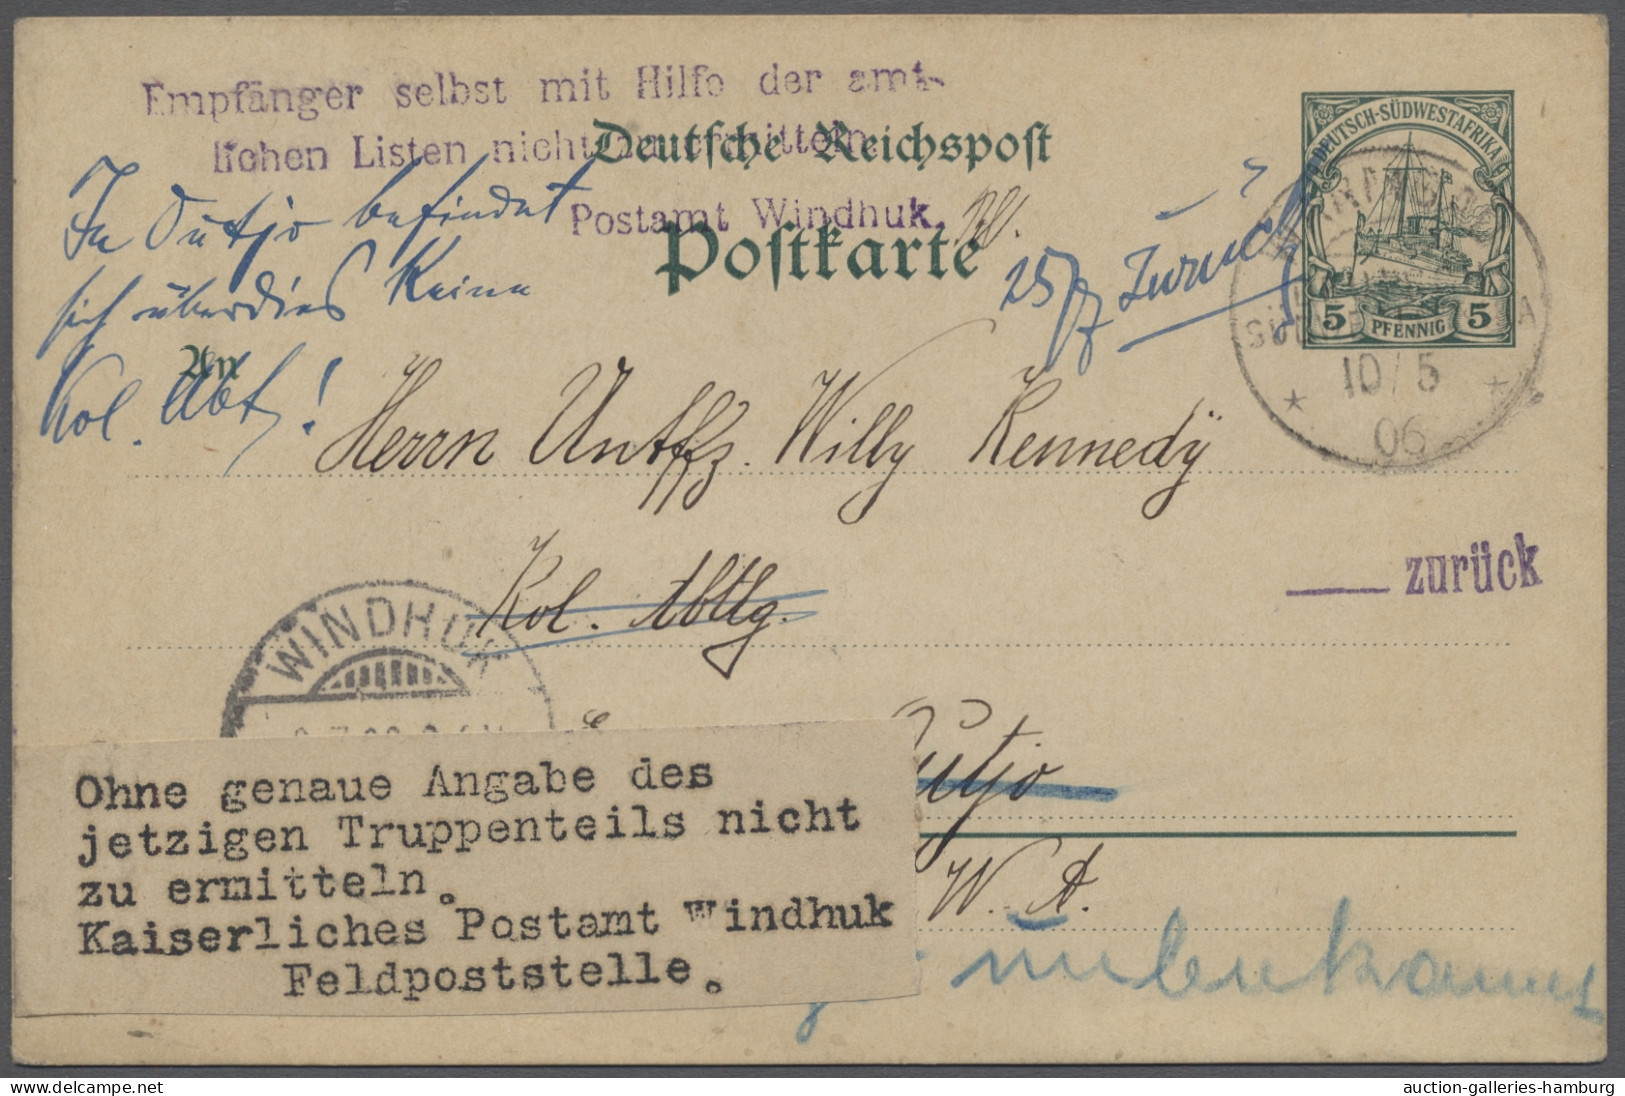 Empfänger selbst mit Hilfe der amt-
lichen Listen nicht zu ermitteln.
Postamt Windhuk.
Deutsche Reichspost
Postkarte
DEUTSCH-SÜDWESTAFRIKA
5 PFENNIG 5
10/5
06
In Outjo befindet
sich überdies keine
Kol. Abt!
25/7 Zurück
An
Herrn Untffz. Willy Kennedÿ
Kol. Abtlg.
zurück
WINDHUK
Outjo
W. A.
Ohne genaue Angabe des
jetzigen Truppenteils nicht
zu ermitteln.
Kaiserliches Postamt Windhuk
Feldpoststelle.
unbekannt
auction-galleries-hamburg